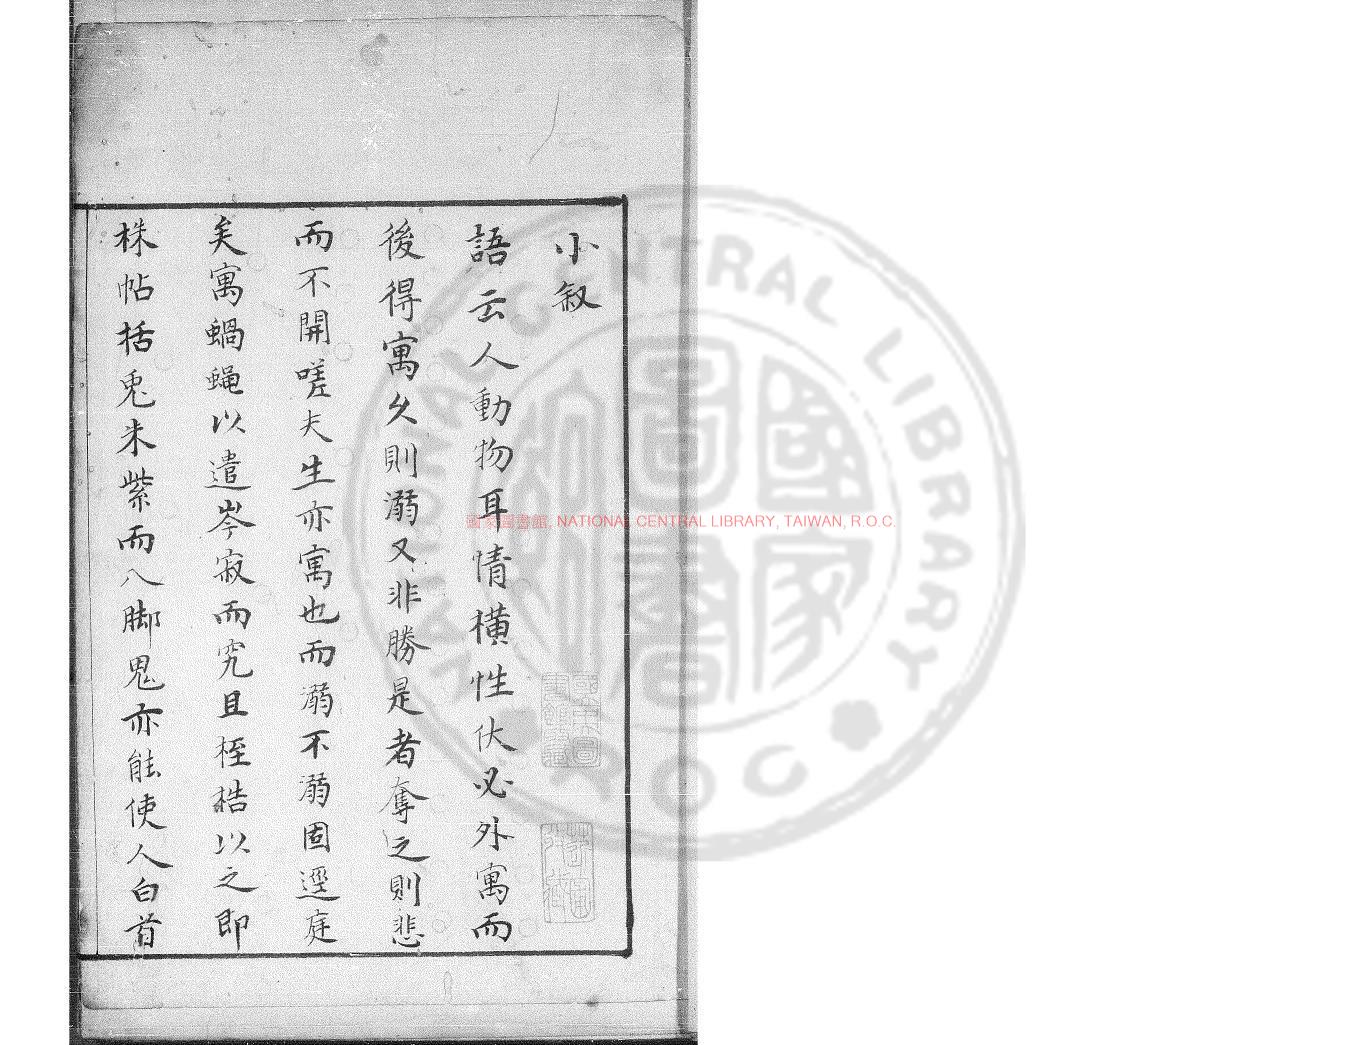 小叙
語云人動物耳情橫性伏必外寓而
後得寓久則溺又非勝是者奪之則悲
而不開嗟夫生亦寓也而溺不溺固逕庭
矣寓蝸蝇以遣岑寂而究且桎梏以之即
株帖括兎朱紫而八脚鬼亦能使人白首
國家圖書館, NATIONAL CENTRAL LIBRARY, TAIWAN, R.O.C.
NATIONAL CENTRAL LIBRARY
ROC
國家圖書